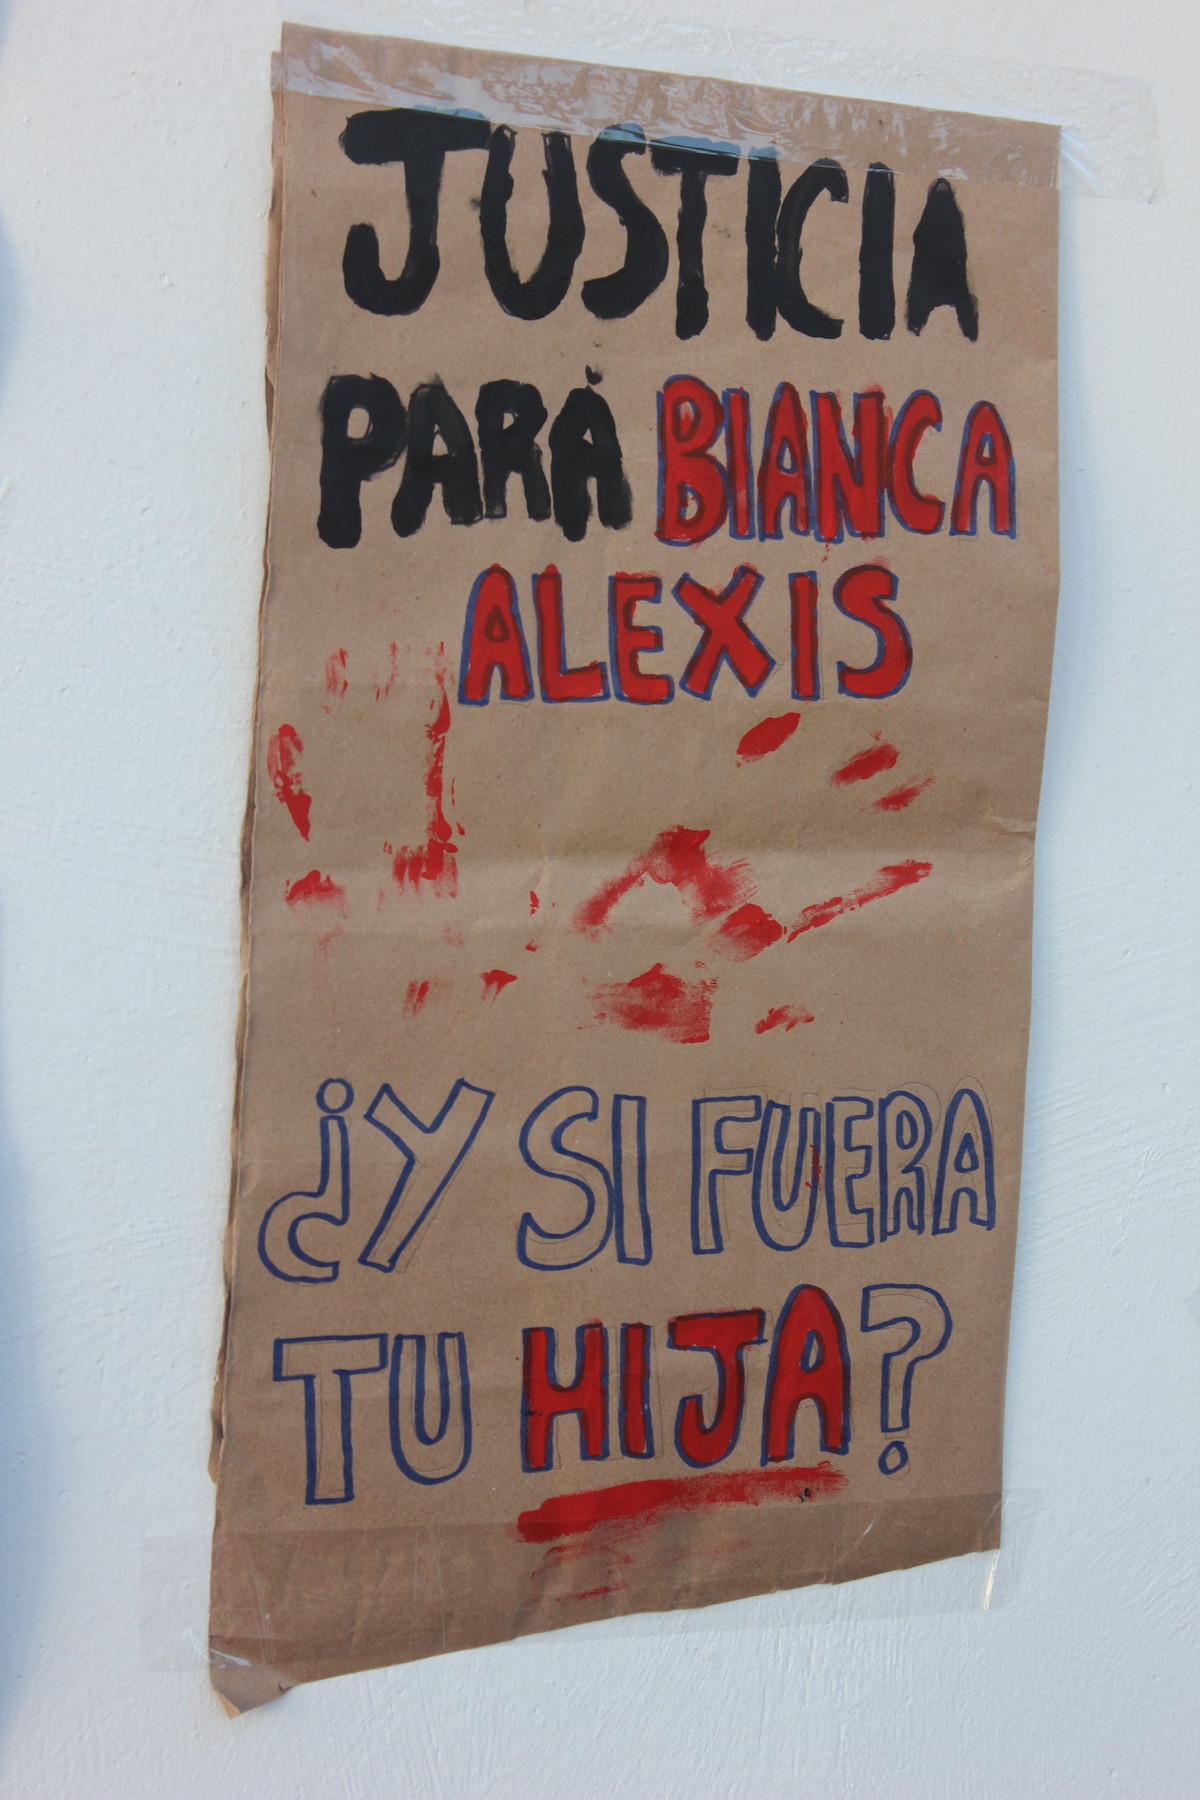 JUSTICIA
PARA BIANCA
ALEXIS
¿Y SI FUERA
TU HIJA?